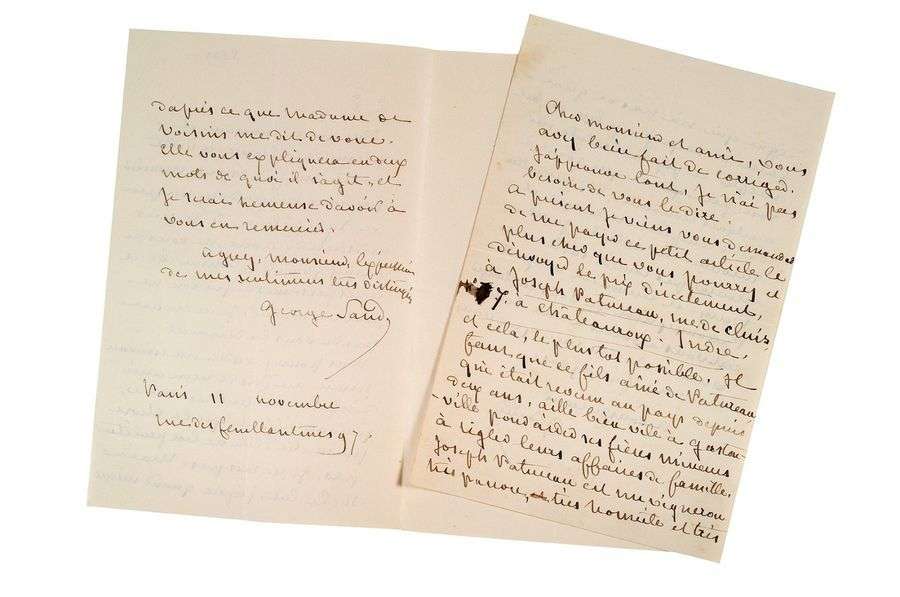 d'après ce que madame de
Voisins me dit de vous.
elle vous expliquera en deux
mots de quoi il s'agit, et
je serais heureuse d'avoir à
vous en remercier.
agréez, monsieur, l'expression
de mes sentimens très distingués
George Sand
Paris 11 novembre
rue des feuillantines 97
Cher monsieur et ami, vous
avez bien fait de corriger.
J'approuve tout, je n'ai pas
besoin de vous le dire.
a présent je viens vous demander
de me payer ce petit article le
plus cher que vous pourrez et
d'envoyer le prix directement,
à Joseph Patureau, rue de Cluis
7. à Châteauroux. Indre.
et cela, le plus tot possible. Il
faut que ce fils aîné de Patureau
qui était revenu au pays depuis
deux ans, aille bien vite à
ville pour aider ses frères mineurs
à régler leurs affaires de famille.
Joseph Patureau est un vigneron
très pauvre, très honnête et très